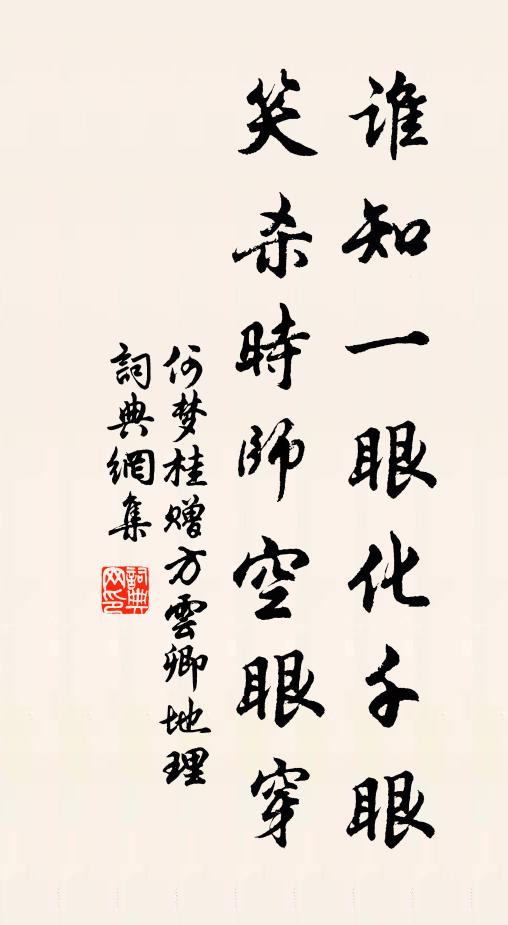 谁知一眼化千眼
笑杀時師空眼穿
何梦桂赠方雲卿地理
詞典網集
詞典
网印